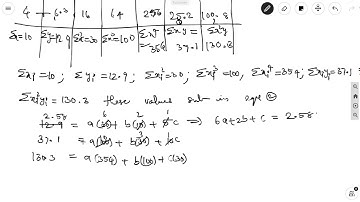 4 6.3 16 64 256 25.2 100.8
Σx=10 Σy=12.9 Σx²=30 Σx³=100 Σx⁴=354 Σxy=37.1 Σx²y 130.8
Σxi=10 ; Σyi=12.9 ; Σxi²=30 ; Σxi³=100, Σxi⁴=354 ; Σxiyi=37.1 ;
Σxi²yi=130.3 these values sub in eqn ②
2.58 = a(30) 6 + b(10) 2 + 5C ⇒ 6a+2b+c = 2.58
37.1 = a(100) + b(30) + C
130.3 = a(354) + b(100) + C(30)